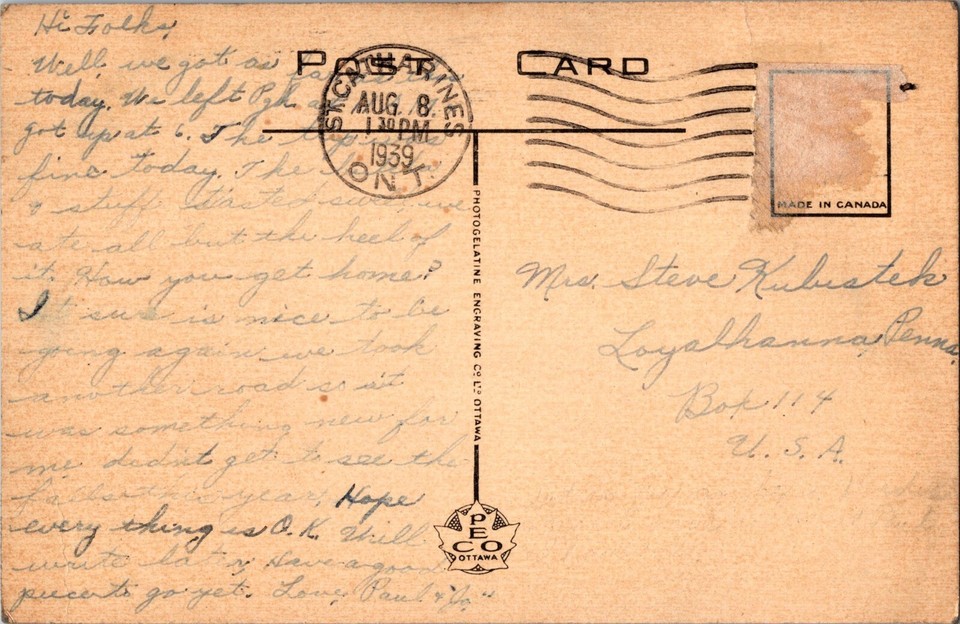 Hi Folks,
Well we got as far as
today. We left Pgh
got up at 6. The trip was
fine today. The
& stuff tasted swell, we
ate all but the heel of
it. How you get home?
It sure is nice to be
going again we took
another road so it
was something new for
me didn't get to see the
falls this year. Hope
every thing is O.K. Will
write later. Have a good
piece to go yet. Love, Paul & Jo"
POST CARD
ST. CATHARINES
AUG 8
1 30 PM
1939
ONT.
MADE IN CANADA
Mrs. Steve Kubistek
Loyalhanna, Penna.
Box 114
U. S. A.
PHOTOGELATINE ENGRAVING CO. LTD. OTTAWA
PECO
OTTAWA